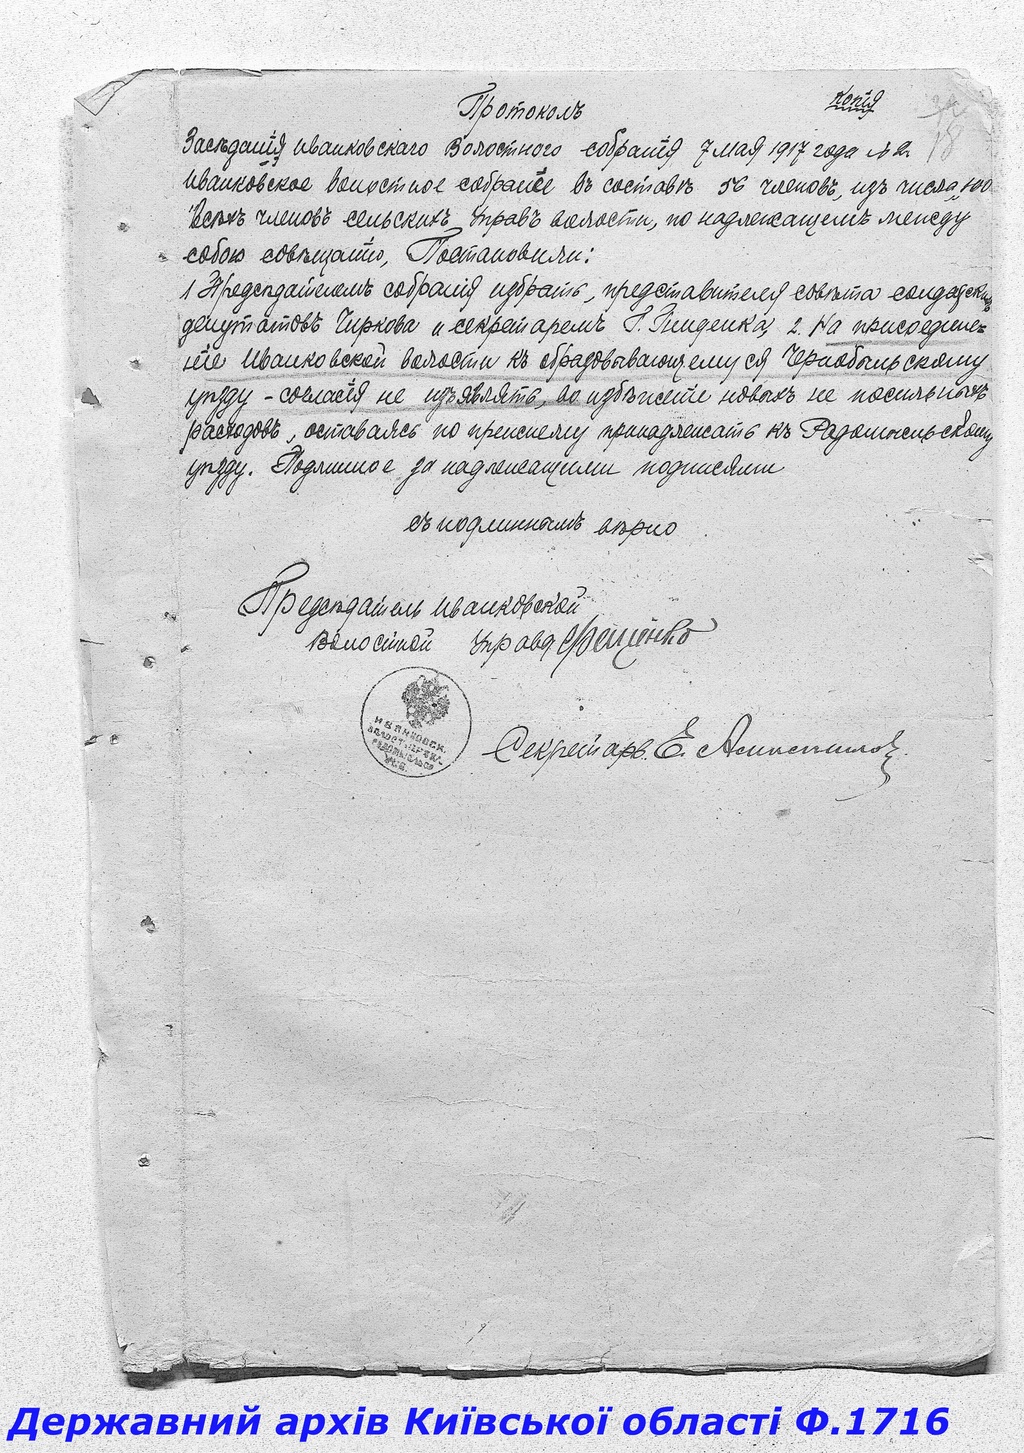 Протоколъ
Копія
18
Засѣданія Иванковскаго Волостного собранія 7 мая 1917 года № 2.
Иванковское волостное собраніе въ составѣ 56 членовъ, изъ числа 100
всѣхъ членовъ сельскихъ управъ волости, по надлежащемъ между
собою совѣщаніи, Постановили:
1 Предсѣдателемъ собранія избрать, представителя совѣта солдатскихъ
депутатовъ Чиркова и секретаремъ Г. 2. На присоедине-
ніе Иванковской волости къ образовывающемуся Чернобыльскому
уѣзду - согласія не изъявлять, во избѣжаніи новыхъ не посильныхъ
расходовъ, оставаясь по прежнему принадлежать къ Радомысльскому
уѣзду. Подлинное за надлежащими подписями
Съ подлиннымъ вѣрно
Предсѣдатель Иванковской
Волостной Управы
Секретарь Е.
ИВАНКОВСК.
Державний архів Київської області Ф.1716